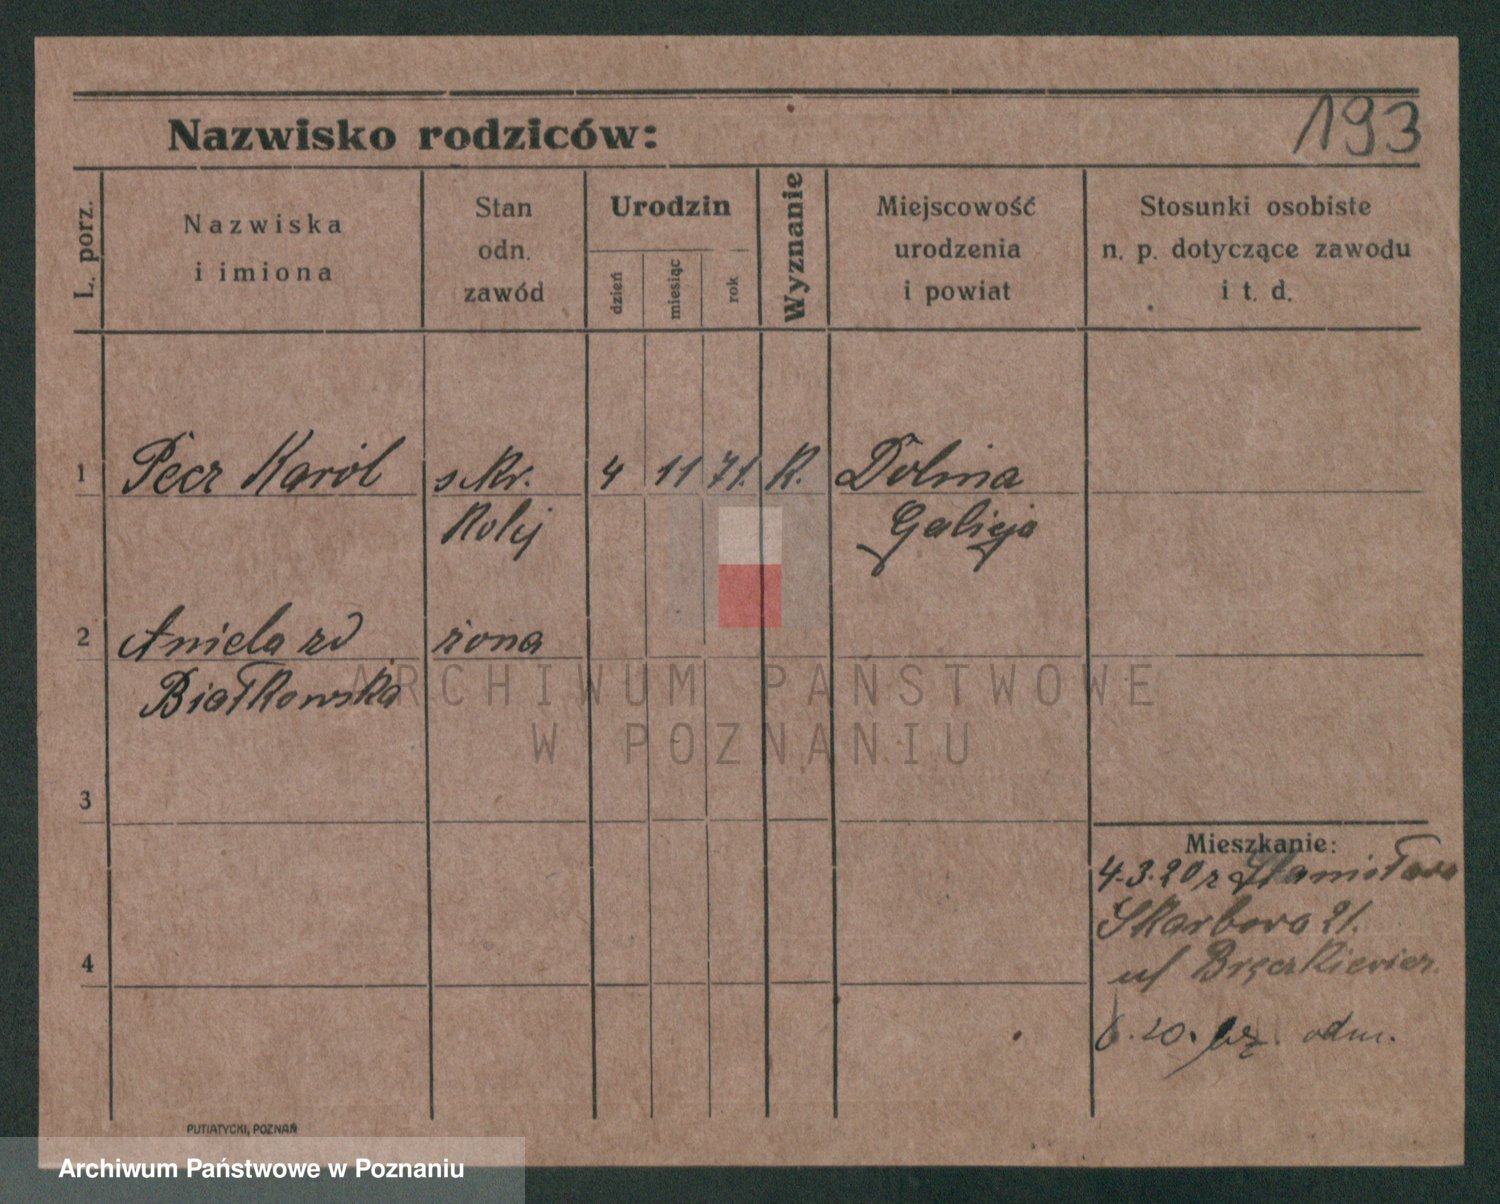 193
Nazwisko rodziców:
L. porz.
Nazwiska
i imiona
Stan
odn.
zawód
Urodzin
dzień
miesiąc
rok
Wyznanie
Miejscowość
urodzenia
i powiat
Stosunki osobiste
n. p. dotyczące zawodu
i t. d.
1 Pecz Karól skr. 4 11 71. K. Dolina
Kolej Galicja
2 Aniela zd żona
Białkowska
ARCHIWUM PAŃSTWOWE
W POZNANIU
3
Mieszkanie:
4.3.20 z Stanisława
Skarbowa 21.
4
u/
6.20. odm.
PUTIATYCKI, POZNAŃ
Archiwum Państwowe w Poznaniu